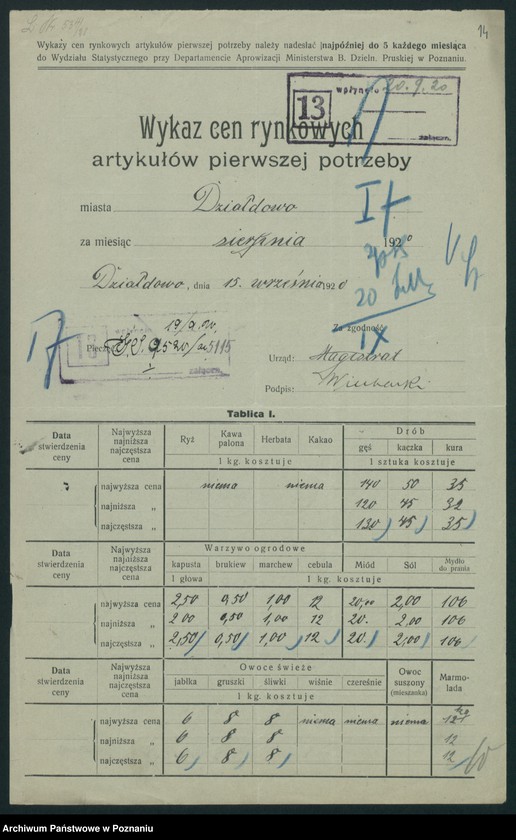 14
Wykazy cen rynkowych artykułów pierwszej potrzeby należy nadesłać najpóźniej do 5 każdego miesiąca
do Wydziału Statystycznego przy Departamencie Aprowizacji Ministerstwa B. Dzieln. Pruskiej w Poznaniu.
13 wpłynęło 20.9.20
załączn.
Wykaz cen rynkowych
artykułów pierwszej potrzeby
miasta Działdowo
za miesiąc sierpnia 1920
Działdowo, dnia 15. września 1920
19/9.20.
Za zgodność
Pieczęć
załączn.
Urząd: Magistrat
Podpis:
Tablica I.
Data stwierdzenia ceny | Najwyższa najniższa najczęstsza cena | Ryż | Kawa palona | Herbata | Kakao | Drób
gęś | kaczka | kura
1 kg. kosztuje | 1 sztuka kosztuje
najwyższa cena | niema | niema | 140 | 50 | 35
najniższa „ | 120 | 45 | 32
najczęstsza „ | 130 | 45 | 35
Data stwierdzenia ceny | Najwyższa najniższa najczęstsza cena | Warzywo ogrodowe | Miód | Sól | Mydło do prania
kapusta | brukiew | marchew | cebula
1 głowa | 1 kg. kosztuje
najwyższa cena | 2,50 | 0,50 | 1,00 | 12 | 20,00 | 2,00 | 106
najniższa „ | 2 00 | 0,50 | 1,00 | 12 | 20. | 2,00 | 106
najczęstsza „ | 2,50 | 0,50 | 1,00 | 12 | 20. | 2,00 | 106
Data stwierdzenia ceny | Najwyższa najniższa najczęstsza cena | Owoce świeże | Owoc suszony (mieszanka) | Marmolada
jabłka | gruszki | śliwki | wiśnie | czereśnie
1 kg. kosztuje
najwyższa cena | 6 | 8 | 8 | niema | niema | niema
najniższa „ | 6 | 8 | 8 | 12
najczęstsza „ | 6 | 8 | 8 | 12
Archiwum Państwowe w Poznaniu